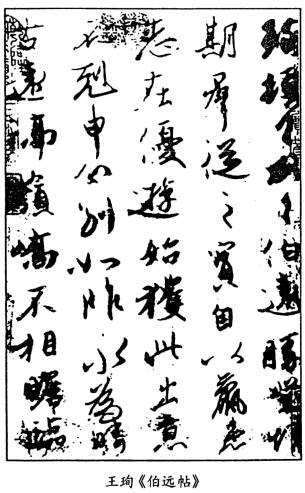 珣頓首頓首伯遠勝業情
期羣從之寶自以羸患
志在優遊始獲此出意
不剋申分別如昨永為疇
古遠隔嶺嶠不相瞻臨
王珣《伯远帖》